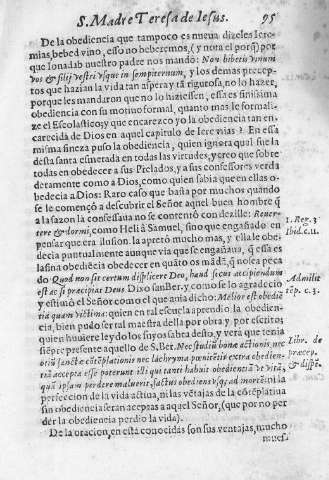 S. Madre Teresa de Iesus. 95
De la obediencia que tampoco es nueva dizeles Ieremias, bebed vino, esso no beberemos, (y nota el porq) por
que Ionadab nuestro padre nos mandò: Non bibetis vinum
vos & filij vestri vsque in sempiternum, y los demas precep
tos que hazian la vida tan aspera y tã rigurosa, no lo hazer,
porque les mandaron que no lo hiziessen, essa es finissima
obediencia con su motiuo formal, quanto mas le formalize el Escolastico; y que encarezco yo la obediencia tan encarecida de Dios en aquel capitulo de Ieremias? En essa
misma fineza puso la obediencia, quien ignora qual fue la
desta santa esmerada en todas las virtudes, y creo que sobre
todas en obedecer a sus Prelados, y a sus confessores verda
deramente como a Dios, como quien sabia que en ellas obedecia a Dios: Raro caso que basta por muchos quando
se le començò a descubrir el Señor aquel buen hombre q̃
a la sazon la confessaua no se contentò con dezille: Reuertere & dormi, como Heli â Samuel, sino que engañado en
pensar que era ilusion. la apretò mucho mas, y ella le obedecia puntualmente aunque via que se engañaua, q̃ essa es
la fina obediẽcia obedecer en quãto os mãdã, q̃ no sea peca
do Quod non sit certum displicere Deo, haud secus accipiendum
est ac si præcipiat Deus Dixo san Ber. y como se lo agradecio
y estimò el Señor como el que auia dicho: Melior est obediẽ
tia quam victima: quien en tal escuela aprendio la obediencia, bien pudo ser tal maestra della por obra y por escrito;
quien huuiere leydo los suyos sabra desto, y verà que tenia
siẽpre presente aquello de S. Ber. Nec studiũ bonæ actionis, nec
otiũ sanctæ cõtẽplationis nec lachryma pœnitẽtis extra obedien
tiã accepta esse poterunt illi qui tanti habuit obedientiã vt vitã,
quã ipsam perdere maluerit, factus obediens vsq; ad mortẽ: ni la
perfeccion de la vida actiua, ni las vẽtajas de la cõtẽplatiua
sin obediencia seran aceptas a aquel Señor, (que por no per
der la obediencia perdio la vida).
De la oracion, en esta conocidas son sus ventajas, mucho
mues-
1. Reg. 3
Ibid. c. 11.
c. 3.
Libr. de
præcep.
& dispẽ.